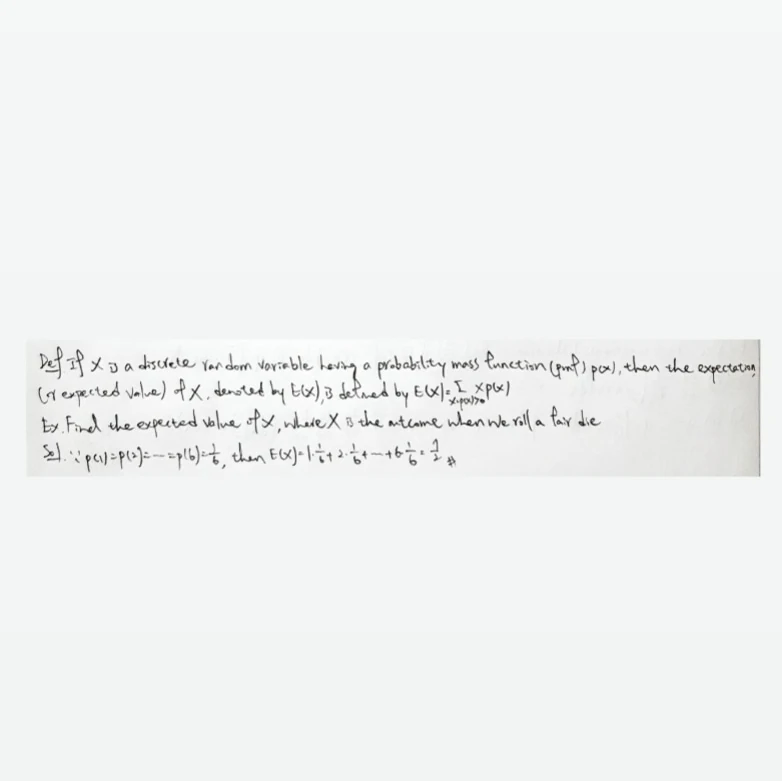 Def If X is a discrete random variable having a probability mass function (pmf) p(x), then the expectation
(or expected value) of X, denoted by E(X), is defined by E(X)=Σ_{x:p(x)>0} xp(x)
Ex. Find the expected value of X, where X is the outcome when we roll a fair die
Sol. ∵ p(1)=p(2)=---=p(6)=1/6, then E(X)=1·1/6+2·1/6+---+6·1/6=7/2 #